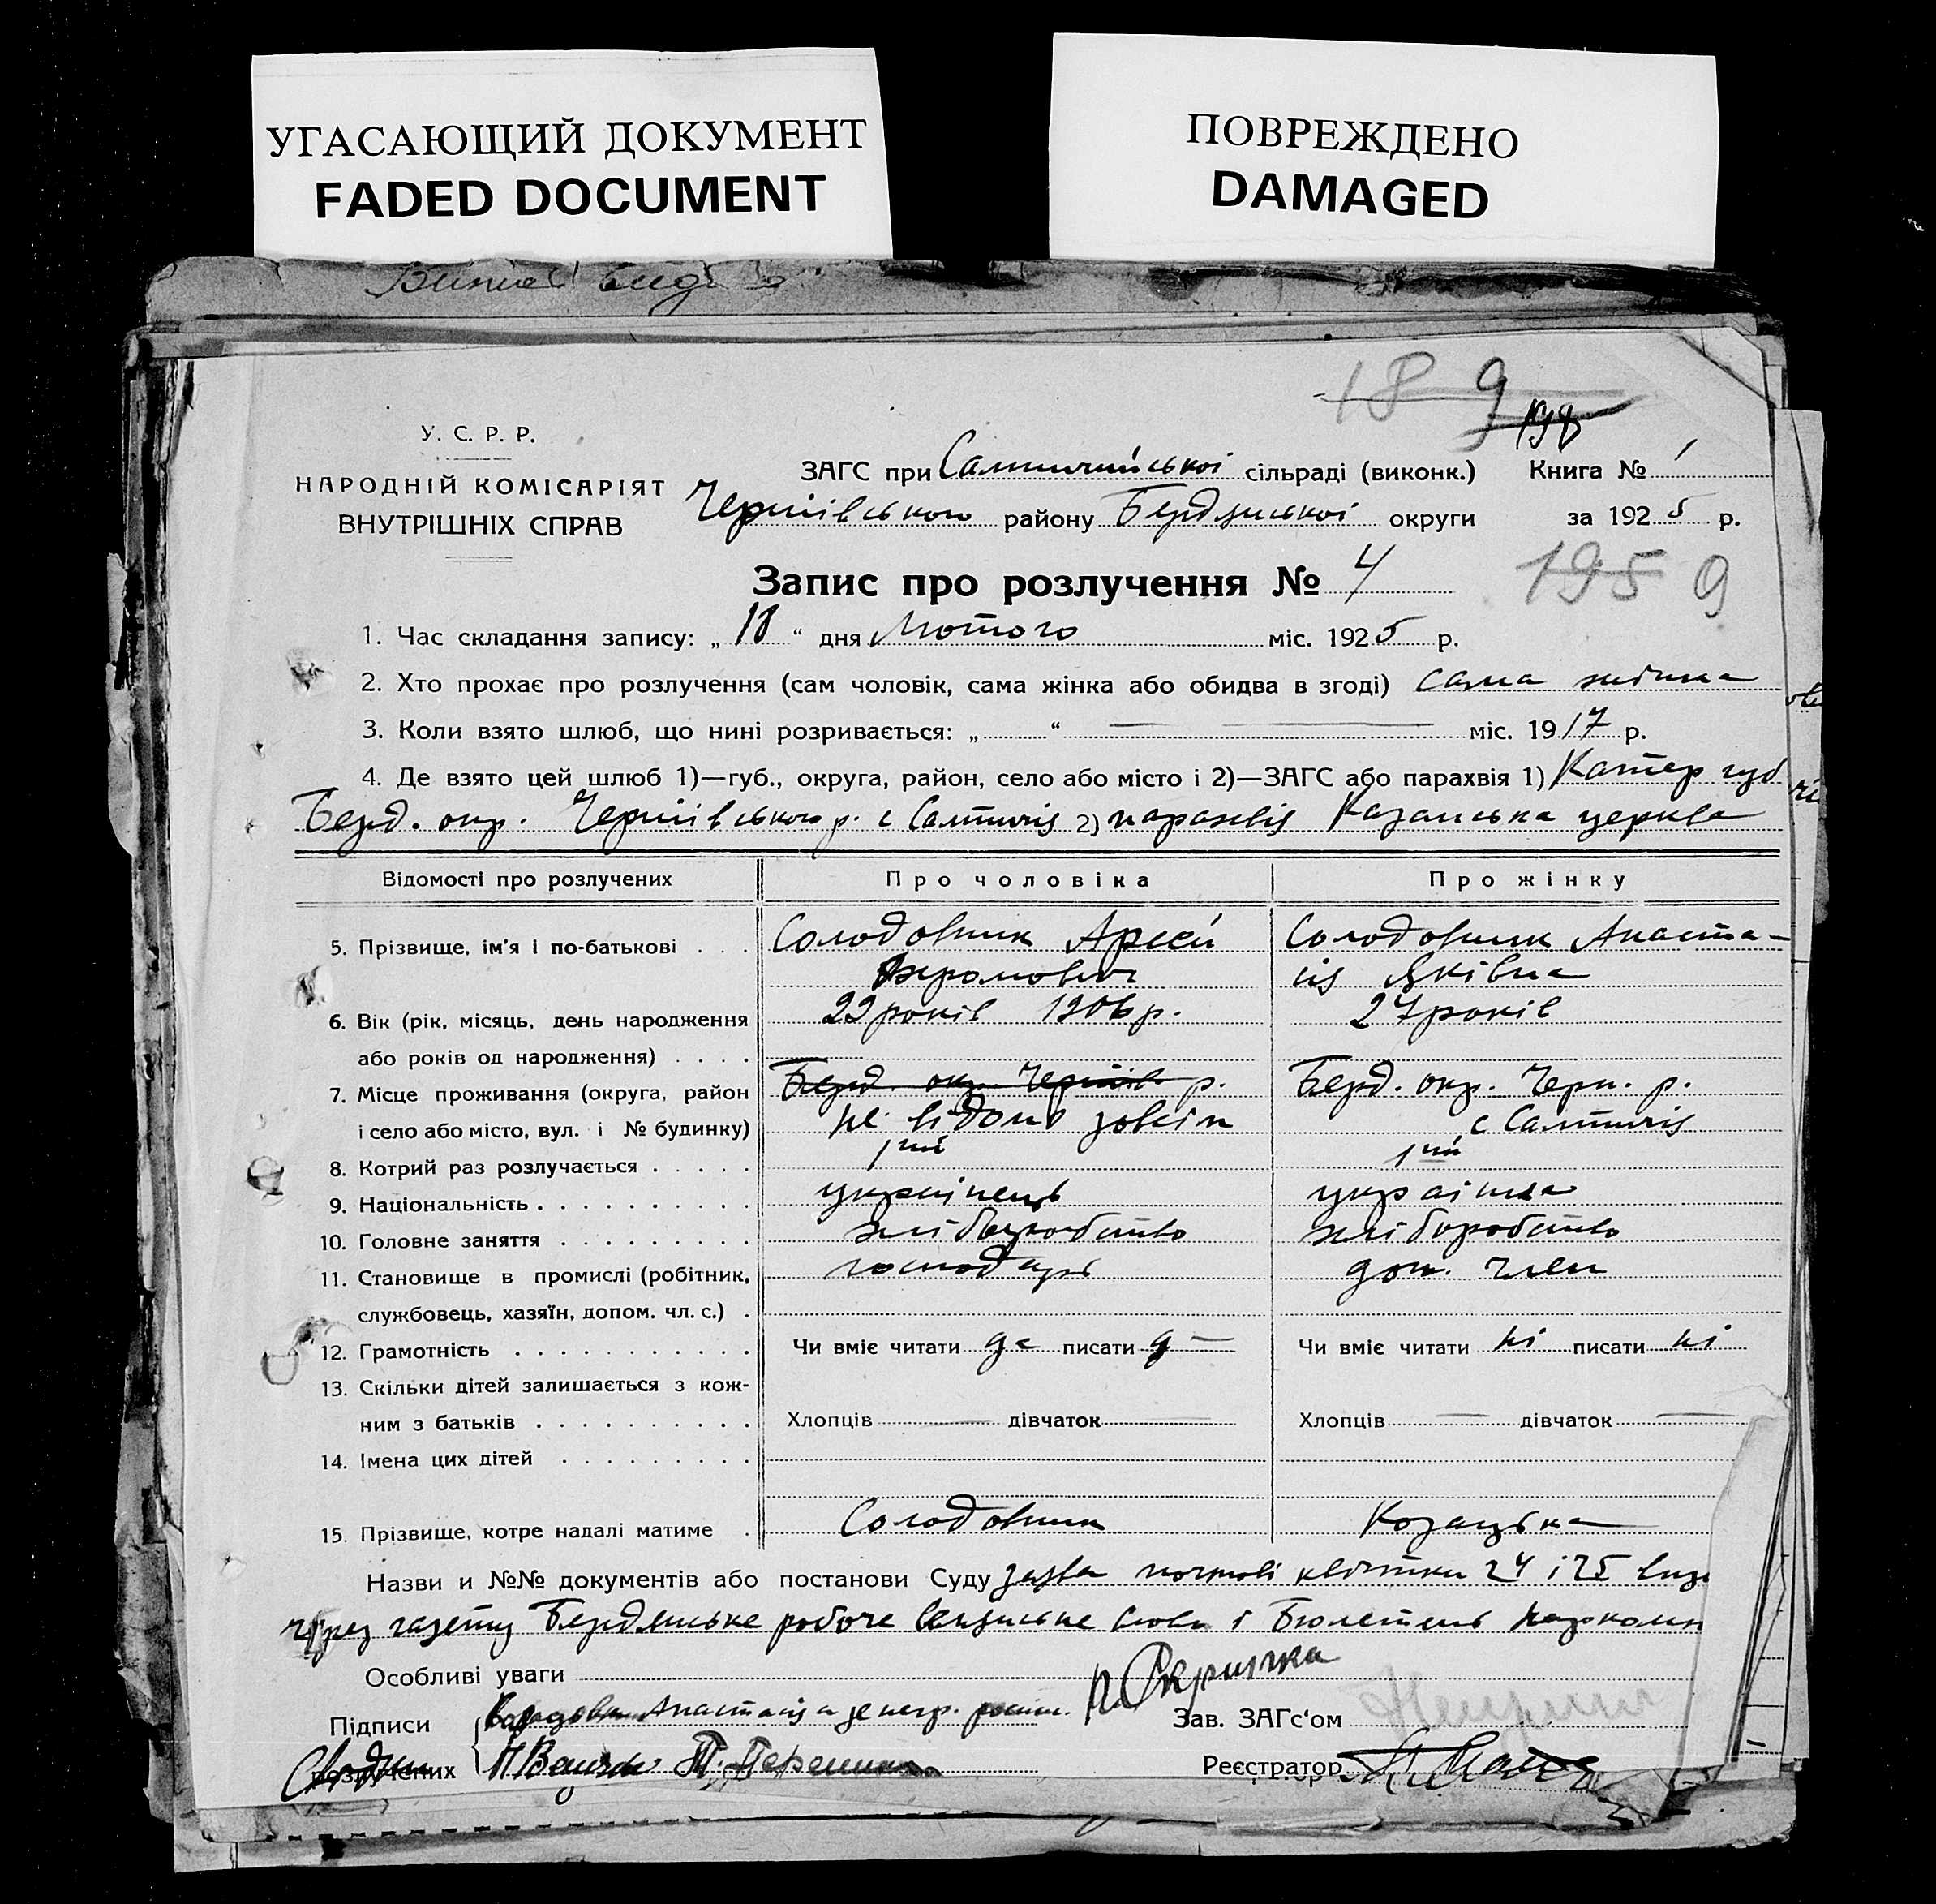 УГАСАЮЩИЙ ДОКУМЕНТ
FADED DOCUMENT
ПОВРЕЖДЕНО
DAMAGED
18 9
198
У. С. Р. Р.
НАРОДНІЙ КОМІСАРІЯТ
ВНУТРІШНІХ СПРАВ
ЗАГС при Салтичійської сільраді (виконк.) Книга № 1
Чернігівського району Бердянської округи за 1925 р.
Запис про розлучення № 4
195 9
1. Час складання запису: „ 18 “ дня Лютого міс. 1925 р.
2. Хто прохає про розлучення (сам чоловік, сама жінка або обидва в згоді) сама жінка
3. Коли взято шлюб, що нині розривається: „ “ — міс. 1917 р.
4. Де взято цей шлюб 1)—губ., округа, район, село або місто і 2)—ЗАГС або парахвія 1) Катер губ
Берд. окр. Чернігівського р. с Салтичія 2) парахвія Казанська церква
Відомості про розлучених Про чоловіка Про жінку
5. Прізвище, ім’я і по-батькові . . . Солодовник Арсей Солодовник Анаста-
сія Яківна
6. Вік (рік, місяць, день народження 22 років 1906 р. 27 років
або років од народження) . . . .
7. Місце проживання (округа, район Берд. окр. Чернігів. р. Берд. окр. Черн. р.
і село або місто, вул. і № будинку) не відомо зовсім с Салтичія
8. Котрий раз розлучається . . . . . 1ий 1ий
9. Національність . . . . . . . . . . українець українка
10. Головне заняття . . . . . . . . . хліборобство хліборобство
11. Становище в промислі (робітник, господарь доп. член
службовець, хазяїн, допом. чл. с.) .
12. Грамотність . . . . . . . . . . . Чи вміє читати да писати д — Чи вміє читати ні писати ні
13. Скільки дітей залишається з кож-
ним з батьків . . . . . . . . . . Хлопців — дівчаток — Хлопців — дівчаток —
14. Імена цих дітей . . . . . . . . .
15. Прізвище, котре надалі матиме . Солодовник Козацька
Назви и №№ документів або постанови Суду заява поштові квітки 24 і 25
через газету Бердянське робоче селянське слово і Бюлетень
Особливі уваги
Підписи Анастасія а за негр. п. Скрипка Зав. ЗАГс‘ом
розлучених Реєстратор